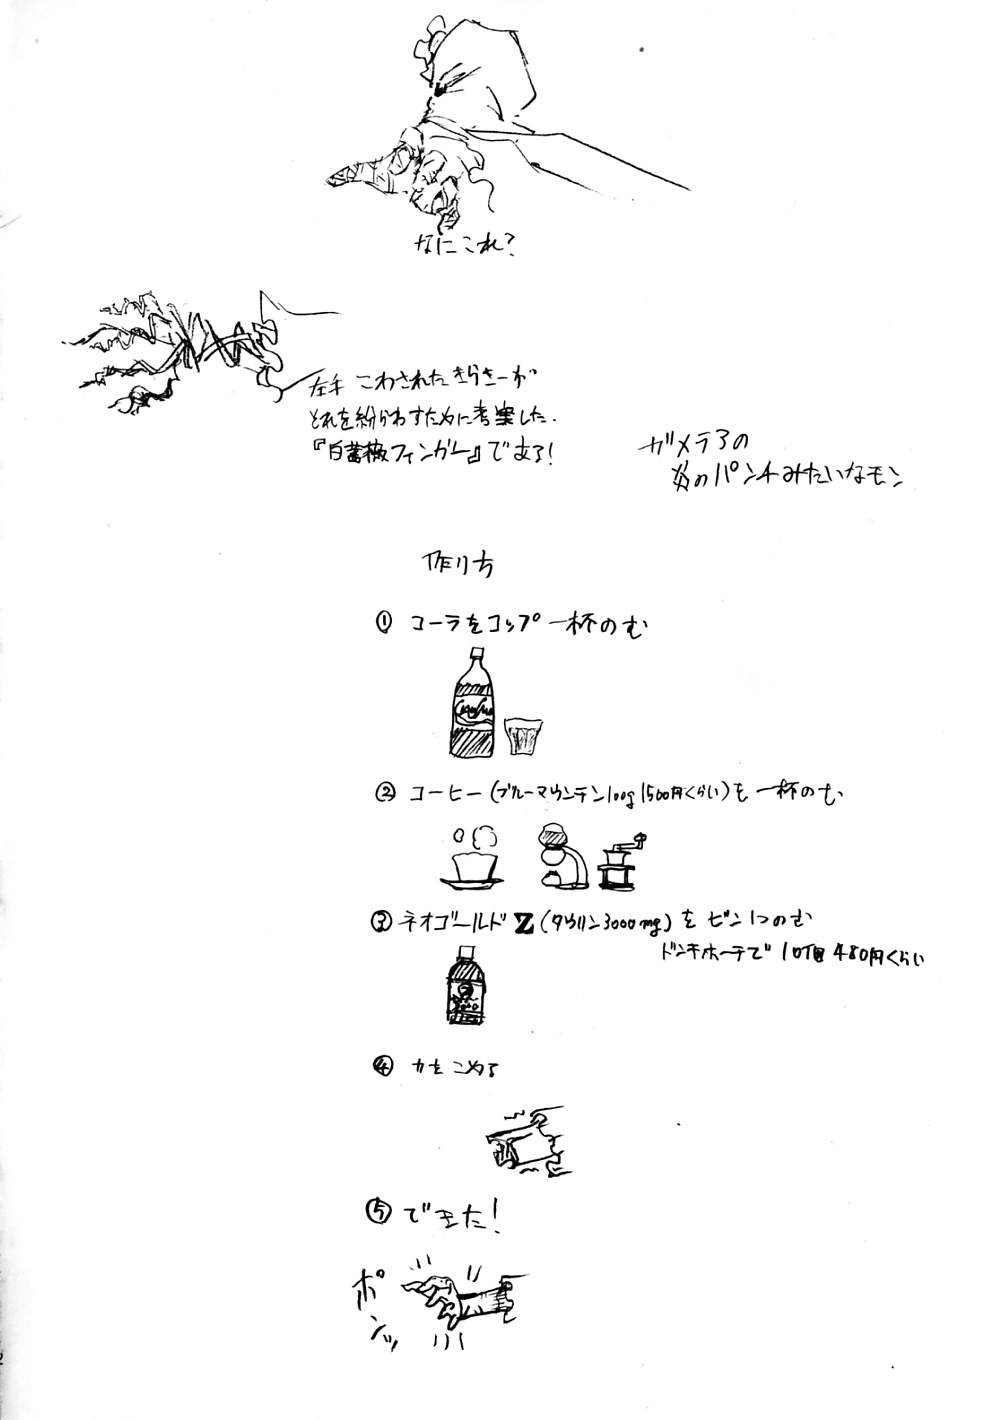 なにこれ?
左手 こわされたきらきーが
それを紛らわすために考案した.
『白薔薇フィンガー』である!
ガメラ3の
炎のパンチみたいなモン
作り方
① コーラをコップ一杯のむ
② コーヒー(ブルーマウンテン100g1500円くらい)も 一杯のむ
③ ネオゴールドZ(タウリン3000mg)を ビン1つのむ
ドンキホーテで 10個 480円くらい
④ 力をこめる
⑤ できた!
ポンッ